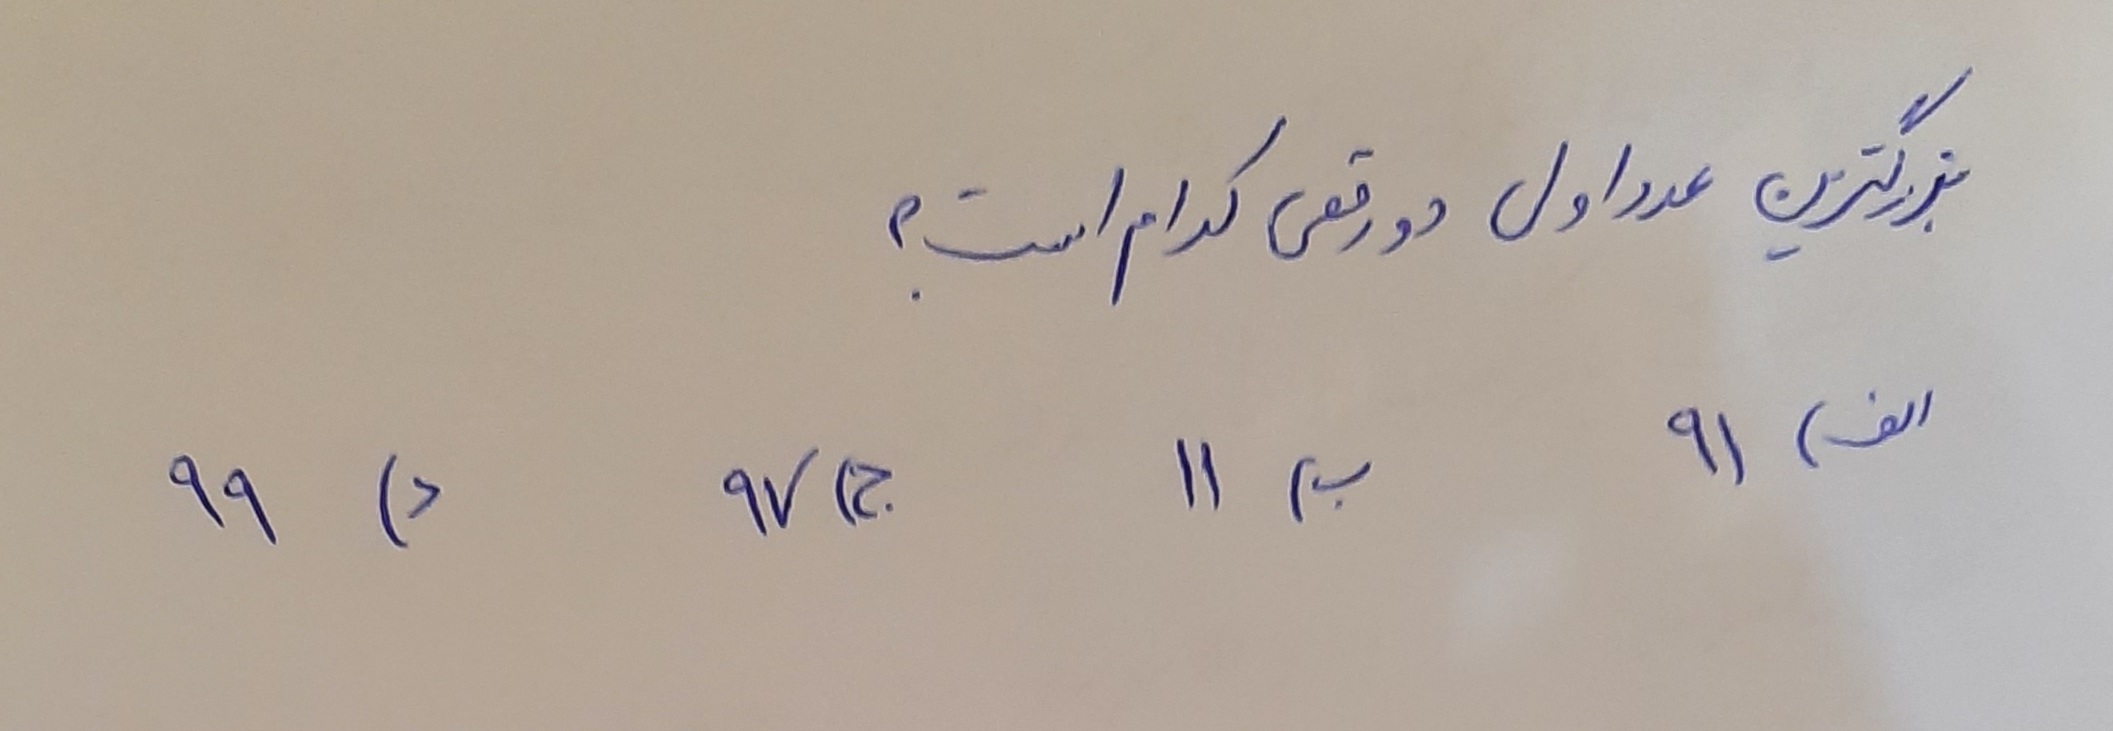 بزرگترین عدد اول دو رقمی کدام است؟
الف) ۹۱ ب) ۱۱ ج) ۹۷ د) ۹۹